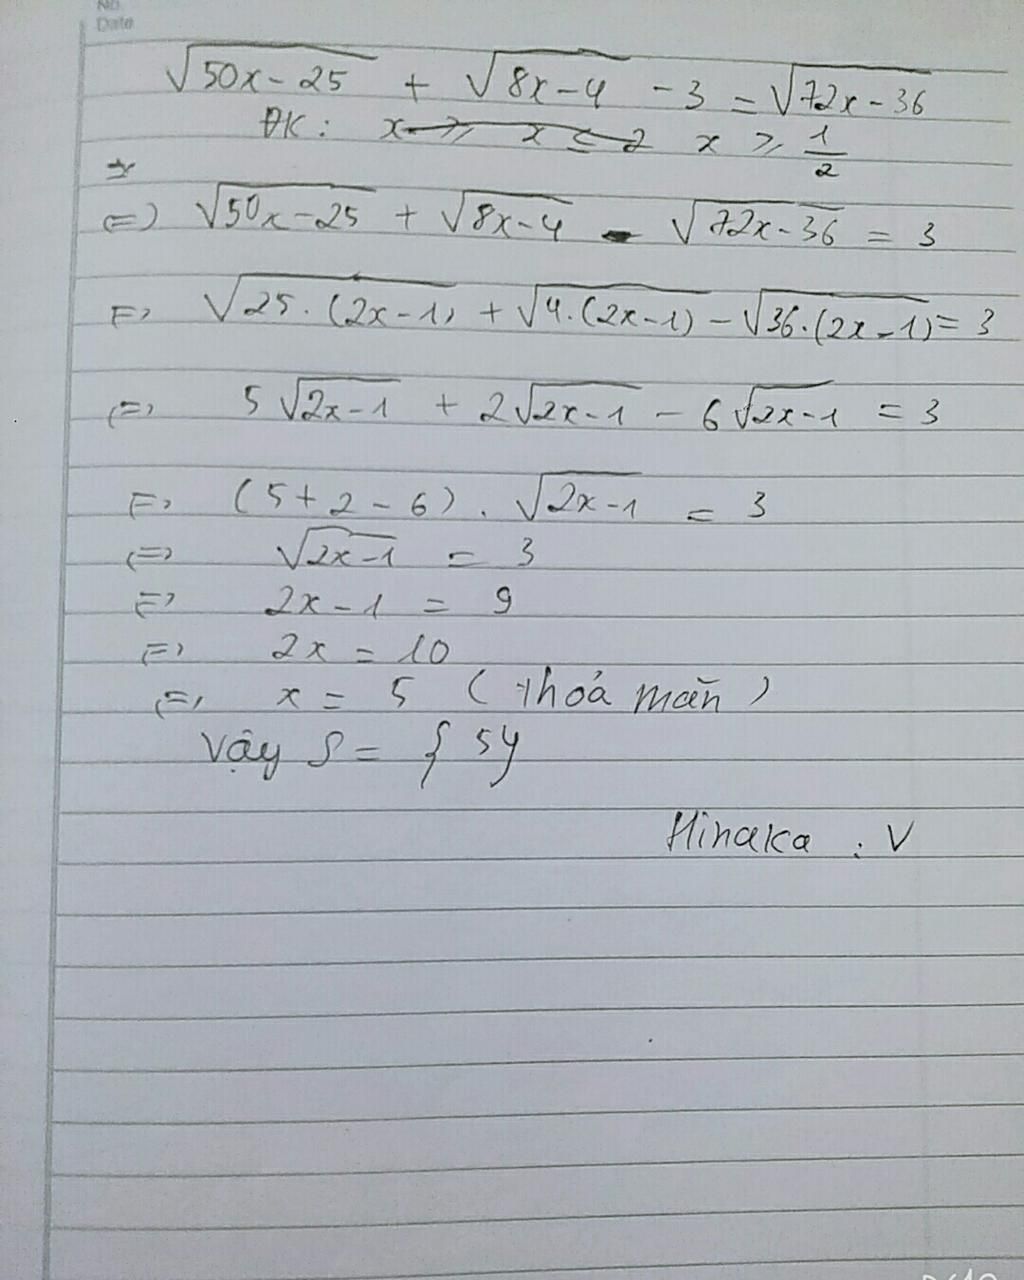 No.
Date
√50x-25 + √8x-4 - 3 = √72x-36
ĐK: x ≥ x ≤ 2 x ≥ 1/2
(=) √50x-25 + √8x-4 - √72x-36 = 3
(=) √25.(2x-1) + √4.(2x-1) - √36.(2x-1) = 3
(=) 5√2x-1 + 2√2x-1 - 6√2x-1 = 3
(=) (5+2-6).√2x-1 = 3
(=) √2x-1 = 3
(=) 2x-1 = 9
(=) 2x = 10
(=) x = 5 (thoả mãn)
Vậy S = {5}
Hinaka : V